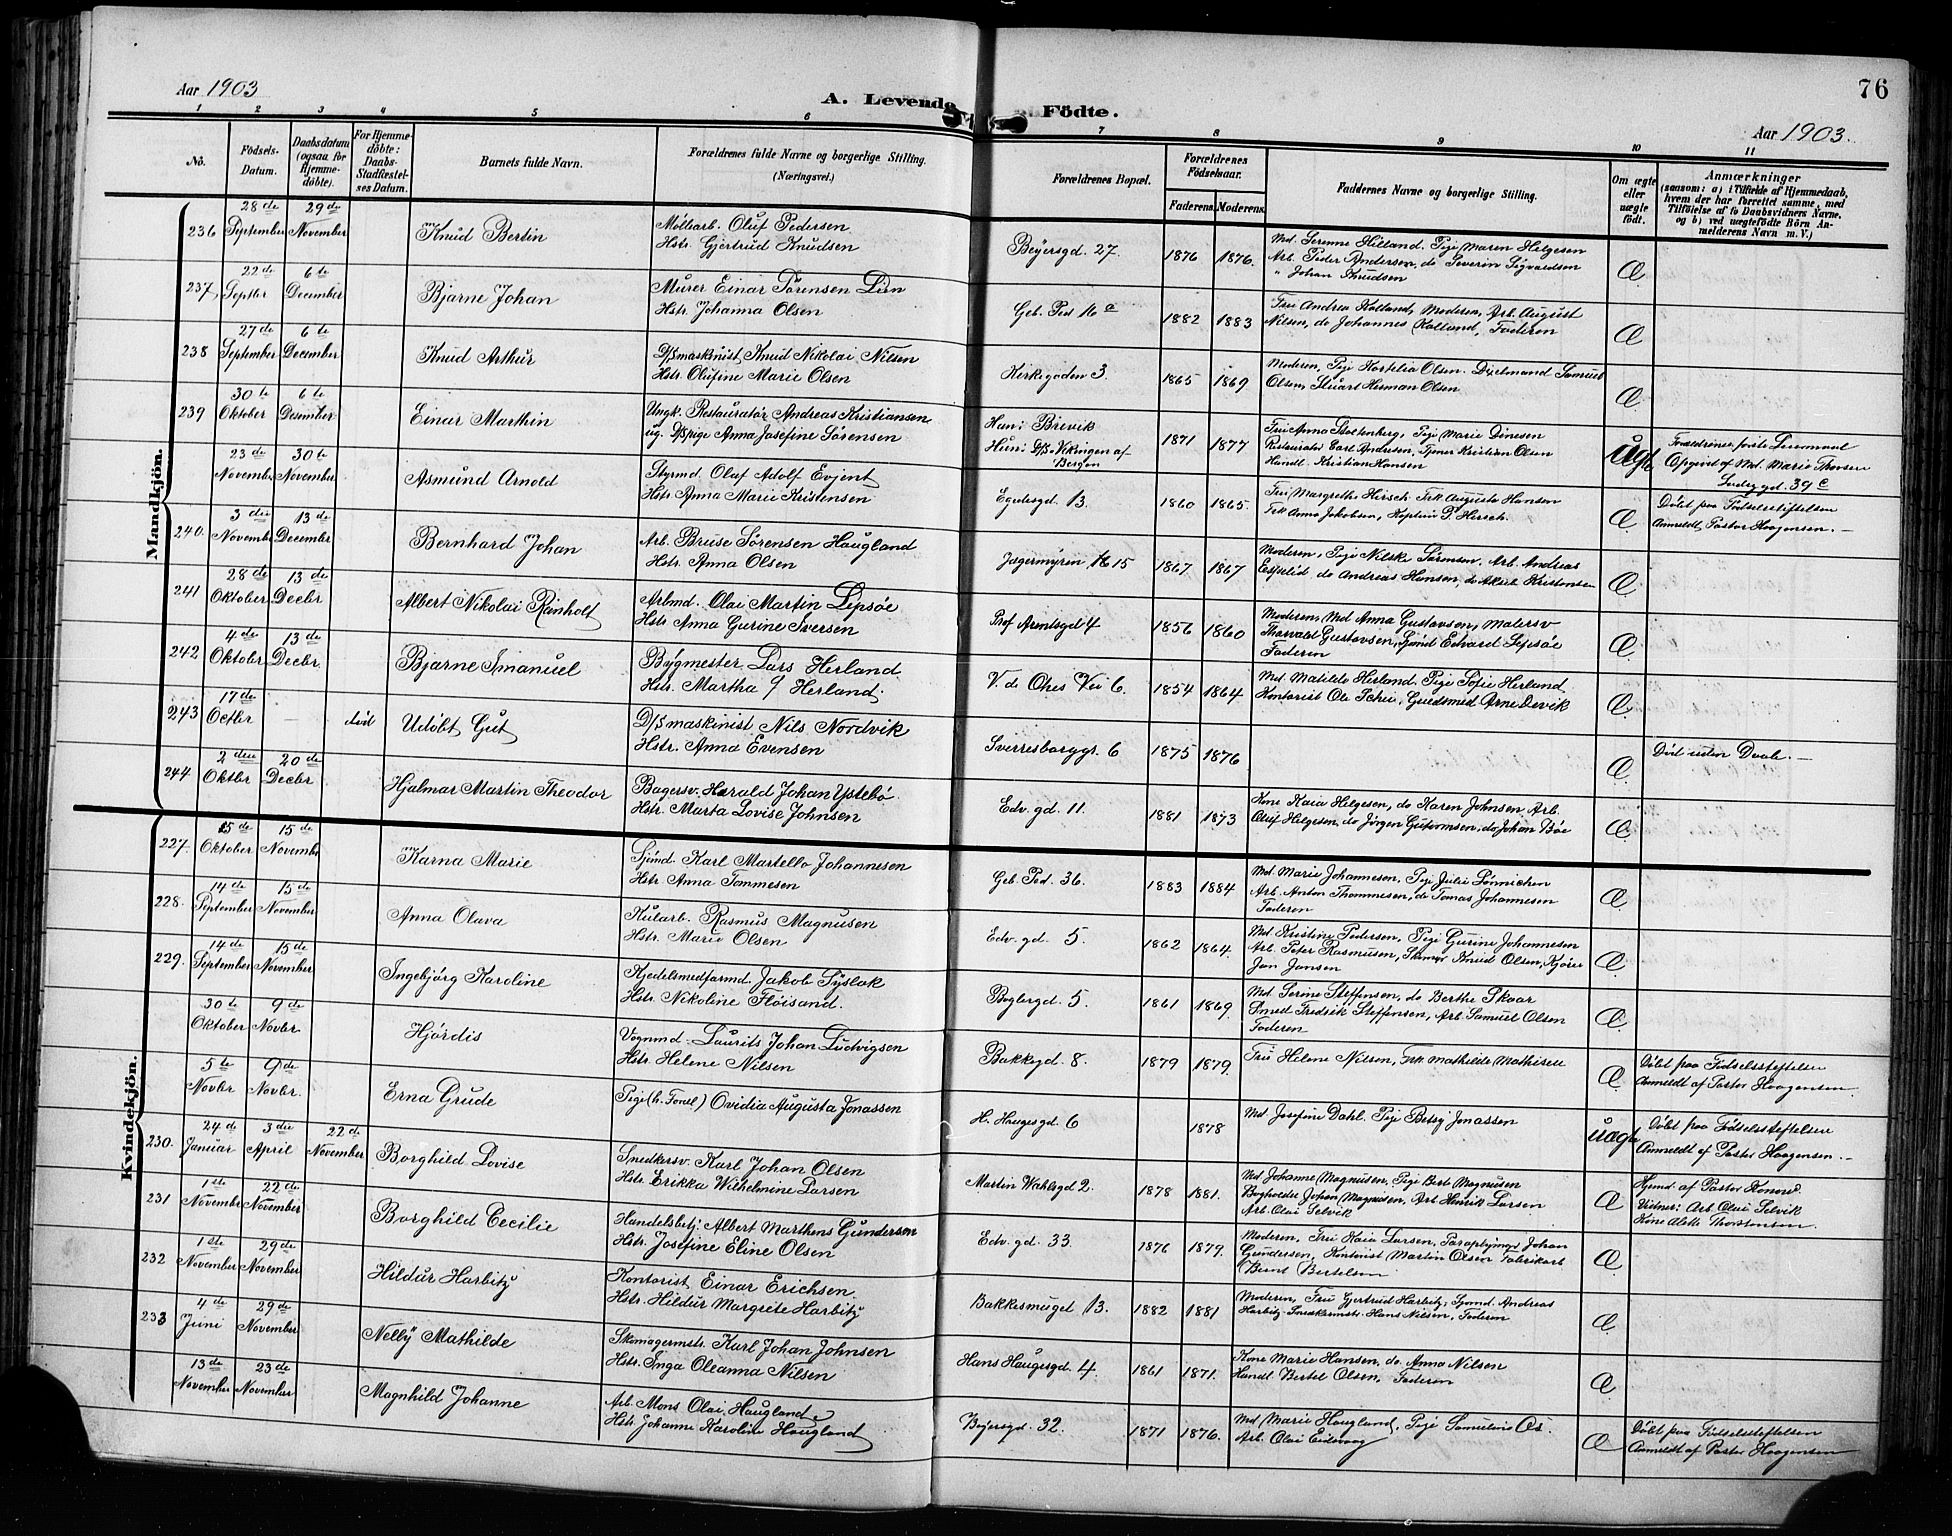 76
Aar 1903
A. Levende Födte.
Aar 1903.
1 2 3 4 5 6 7 8 9 10 11
Nö.
Födsels-Datum.
Daabsdatum (ogsaa for Hjemme-döbte).
For Hjemme-döbte: Daabs-Stadfæstel-ses Datum.
Barnets fulde Navn.
Forældrenes fulde Navne og borgerlige Stilling. (Næringsvei.)
Forældrenes Bopæl.
Forældrenes Födselsaar.
Faderens. Moderens.
Faddernes Navne og borgerlige Stilling.
Om ægte eller uægte födt.
Anmærkninger
(saasom: a) i Tilfælde af Hjemmedaab, hvem der har forrettet samme, med Tilföielse af to Daabsvidners Navne, og b) ved uægtefödte Börn An-melderens Navn m. V.)
Mandkjön.
236 28de September 29de November Knud Bertin Möllarb. Oluf Pedersen
Hstr. Gjertrud Knudsen
Beyersgd. 27. 1876 1876. Md. Serenne Hilland. Pige Maren Helgesen
Arb. Peder Andersen, do Severin Sigvaldsen
" Johan Knudsen
Æ
237 22de Septbr 6te December Bjarne Johan Murer Einar Sörensen Lien
Hstr. Johanna Olsen
Geb. Ped 16a 1882 1883 Fru Andrea Kolland, Moderen, Arb. August
Nilsen, do Johannes Kolland, Faderen
Æ
238 27de September 6te December Knud Arthur D/Smaskinist Knud Nikolai Nilsen
Hstr. Olufine Marie Olsen
Kirkegaden 3. 1865 1869 Moderen, Pige Kornelia Olsen. Dixelmand Samuel
Olsen, Stuart Herman Olsen
Æ
239 30te Oktober 6te Desember Einar Marthin Ungk. Restauratör Andreas Kristiansen
ug. D/Spige Anna Josefine Sörensen
Han: Brevik
Hun: D/S. Vikingen af Bergen
1871 1877 Fru Anna Stoltenberg, Pige Marie Dinesen
Restauratör Carl Andersen, Tjener Kristian Olsen
Handl. Kristian Hansen
Uægt Forældrenes förste Leiermaal
Opgivet af Md. Marie Thorsen
39c
23de November 30te November Asmund Arnold Styrmd. Oluf Adolf Evjent
Hstr. Anna Marie Kristensen
Egedesgd. 13. 1860 1865. Fru Margrethe Hirsch. Frk. Augusta Hansen
Frk Anna Jakobsen, Kaptein P. Hirsch.
Æ Döbt paa Födselsstiftelsen
Anmeldt Pastor Haagensen.—
240. 3die November 13de December Bernhard Johan Arb. Bruse Sörensen Haugland
Hstr. Anna Olsen
Jagermyren, 16 15 1867 1867 Moderen, Pige Nilske Sörensen. Arb. Andreas
Espelid do Andreas Hansen, do Kristensen
Æ
241 28de Oktober 13de Decbr Albert Nikolai Reinholt Arbmd. Olai Martin Lepsöe
Hstr. Anna Gurine Iversen
Bef Arentsgd 4 1856 1860 Moderen, Md Anna Gustavsen, Malersv
Thorvald Gustavsen, Sjömd Edvard Lepsöe
Faderen
Æ
242 4de Oktober 13de Decbr. Bjarne Imanuel Bygmester Lars Herland
Hstr. Martha Herland.
V. de Ohes Vei 6. 1854 1864 Md. Matilde Herland. Pige Sofie Herland.
Kontorist Ole Schie, Guldsmed Arne Devik
Æ
243 17de Octbr — död Udöbt Gut D/Smaskinist. Nils Nordvik
Hstr. Anna Evensen
Sverresborggt. 6 1875 1876 Æ Död uden Daab.—
244. 2den Oktbr 20de Decbr Hjalmar Martin Theodor Bagersv. Harald Johan Ystebö
Hstr. Marta Lovise Johnsen
Edv. gd. 11. 1881 1873 Kone Kaia Helgesen, do Karen Johnsen. Arb.
Oluf Helgesen, do Jörgen Guttormsen, do Johan Böe
Æ
Kvindekjön.
227. 5de Oktober 15de November Karna Marie Sjömd. Karl Martello Johannesen
Hstr. Anna Tommesen
Geb. Ped. 36. 1883 1884 Md. Marie Johannesen, Pige Julie Sönnichen
Arb. Anton Thommesen, do Tomas Johannesen
Faderen
Æ
228. 14de September 15de November Anna Olava Kularb. Rasmus Magnusen
Hstr. Marie Olsen
Edv. gd. 5. 1862 1864. Md. Kristine Pedersen, Pige Gurine Johannesen
Arb. Peter Rasmusen, Knud Olsen, Kjörer
Jan Jansen
Æ
229. 14de September 15de November Ingebjörg Karoline Kjedelsmedformd. Jakob Syslak
Hstr. Nikoline Flöisand.
Boglergd. 5. 1861 1869. Md. Serine Steffensen, do Berthe Skaar
Smed Fredrik Steffensen, Arb. Samuel Olsen
Faderen
Æ
30te Oktober 9de Novbr. Hjördis Vognmd. Laurits Johan Ludvigsen
Hstr. Helene Nilsen
Bakkegd. 8. 1879 1879. Fru Helene Nilsen, Frk. Mathilde Mathisen
Æ Döbt paa Födselsstiftelsen
Anmeldt af Pastor Haagensen.
5te Novbr 9de Novbr. Erna Grude Pige Ovidia Augusta Jonassen
H. Haugesgd. 6 1878 Md. Josefine Dahl. Pige Betsy Jonassen
uægte Döbt paa Födselsstiftelsen
Anmeldt af Pastor Haagensen.—
230. 24de Januar 3die April 22de November Borghild Lovise Snedkersv. Karl Johan Olsen
Hstr. Erikka Wilhelmine Larsen
Martin Wahlsgd 2. 1878 1881. Md Johanne Magnusen, Pige Berte Magnusen
Bogholder Johan Magnusen, Arb Henrik Larsen
Arb. Olai Selvik
Æ Hjemd. af Pastor Konow.
Vidner: Arb. Olai Selvik
Kone Alette Thorstensen.
231 1ste November 22de November Borghild Cecilie Handelsbetj. Albert Marthens Gundersen
Hstr. Josefine Eline Olsen
Edv. gd. 33. 1876 1879. Moderen, Fru Kaia Larsen, Johan
Gundersen, Kontorist Martin Olsen Fabrikarb
Bernt Bertelsen
Æ
232 1ste November 29de November Hildur Harbitz Kontorist Einar Erichsen.
Hstr. Hildur Margrete Harbitz
Bakkesmuget 13. 1882 1881 Moderen, Fru Gjertrud Harbitz, Sjömd. Andreas
Harbitz. Snedkermstr. Hans Nilsen, Faderen
Æ
233 4de Juni 29de November Nelly Mathilde Skomagermstr. Karl Johan Johnsen
Hstr. Inga Oleanna Nilsen
Hans Haugesgd. 4. 1861 1871. Kone Marie Hansen, do. Anna Nilsen
Handl. Bertel Olsen, Faderen
Æ
13de November 23de November Magnhild Johanne Arb. Mons Olai Haugland
Hstr. Johanne Karoline Haugland
Beyersgd. 32. 1871 1876. Md. Marie Haugland, Pige Samuline Os.
Arb. Olai Eidsvaag
Æ Döbt paa Födselsstiftelsen
Anmeldt af Pastor Haagensen